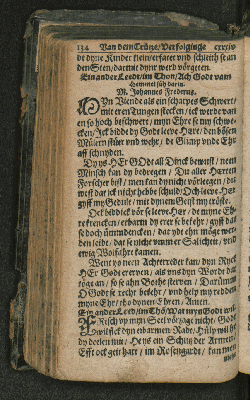 134 Van dem Crütze/ Verfolginge
de dyne Kinder
den Sten/ darmit dyne werd
Ein ander Leedt/ im Thon/ Ach Godt vam
Hemmel süh darin.
M. Johannes Frederus.
Viende als ein scharpes Schwert/
mit eren Tungen stecken/ ick werde van
en so hoch beschwert/ myn Ehre se my
cken/ Ick bidde dy Godt leve Here/ den bösen
Mülern stür und wehr/ de Glimp unde Ehr
aff schnyden.
Dyns HEr GOdt all Dinck bewust/ neen
Minsch kan dy bedregen/ Du aller Herten
Forscher bist/ men kan dy nicht vörlegen/ du
west dat ick nicht hebbe schuld/ Och leve HEr
gyff my Gedult/ mit dynem Geyst my tröste.
Ock bidde ick vör se leve Her/ de myne Eh-
re krencken/ erbarm dy erer se bekehr/ gyff dat
se doch ümmdencken/ dat ydt ehn möge wer-
den leide/ dat se nicht van erer Salicheit/ und
ewig Wolfahrt kamen.
Went ys neen Achterreder kan/ dyn Ryck
HEr Godt ererven/ als uns dyn Wordt dat
töge an/ so se ahn Bothe sterven/ Darümme
O Godt se recht bekehr/ und help my redden
myne Ehr/ tho dynen Ehren/ Amen.
Ein ander Leed/ im Thö/ Wat myn Godt wil.
Frisch up myn Seel vörzage nicht/ Godt
wil sick dyn erbarmen/ Rade/ Hülp wil he
dy deelen mit/ He ys ein Schütz der Armen/
Efft ock geit hart/ im Rosengarde/ kan men